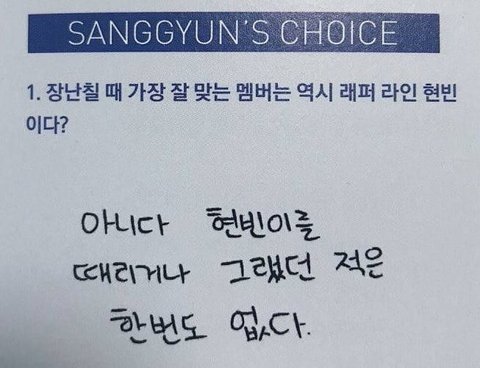 SANGGYUN'S CHOICE
1. 장난칠 때 가장 잘 맞는 멤버는 역시 래퍼 라인 현빈
이다?
아니다 현빈이를
때리거나 그랬던 적은
한번도 없다.